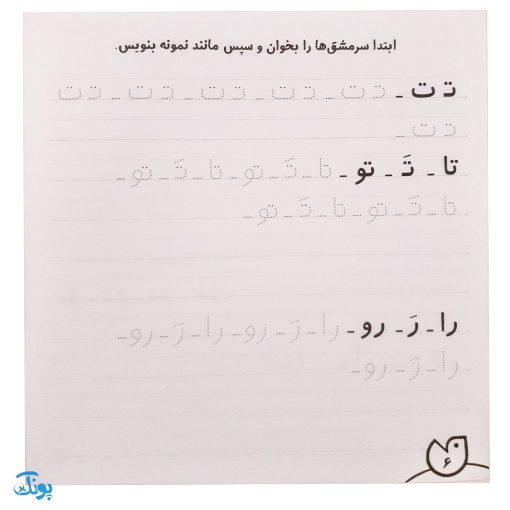 ابتدا سرمشق‌ها را بخوان و سپس مانند نمونه بنویس.
تـ ت - تـ ت - تـ ت - تـ ت - تـ ت - تـ ت
تـ ت -
تا - تَ - تو - تا - تَ - تو - تا - تَ - تو -
تا - تَ - تو - تا - تَ - تو -
را - رَ - رو - را - رَ - رو - را - رَ - رو -
را - رَ - رو -
۶
پونک